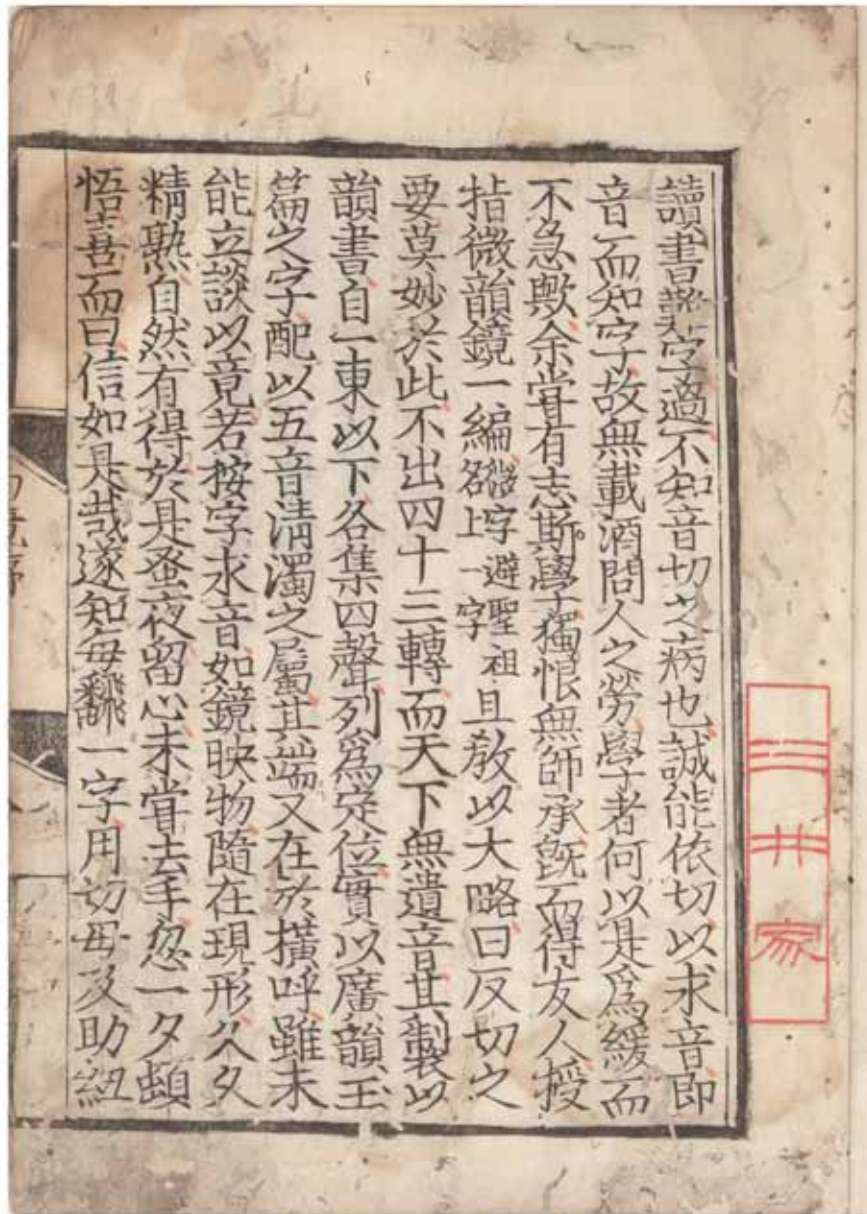 讀書難字過不知音切之病也誠能依切以求音即
音而知字故無載酒問人之勞學者何以是爲緩而
不急歟余嘗有志斯學獨恨無師承旣而得友人授
指微韻鏡一編微字避聖祖名上一字且教以大略曰反切之
要莫妙於此不出四十三轉而天下無遺音其製以
韻書自一東以下各集四聲列爲定位實以廣韻玉
篇之字配以五音清濁之屬其端又在於横呼雖未
能立談以竟若按字求音如鏡映物隨在現形久久
精熟自然有得於是蚤夜留心未嘗去手忽一夕頓
悟喜而曰信如是哉遂知每翻一字用切母及助紐
三井家